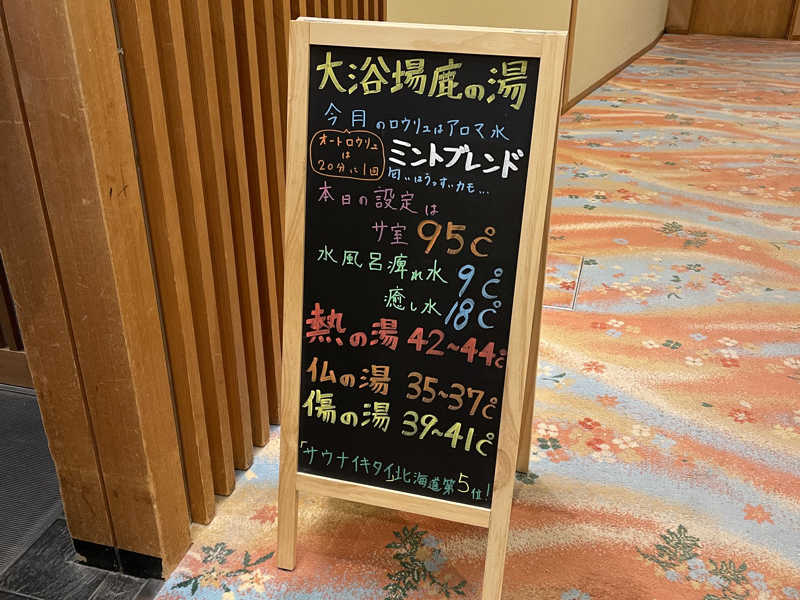 大浴場鹿の湯
今月のロウリュはアロマ水
オートロウリュ
は
20分に1回
ミントブレンド
匂いはうっすいカモ…
本日の設定は
サ室 95℃
水風呂痺れ水 9℃
癒し水 18℃
熱の湯 42~44℃
仏の湯 35~37℃
傷の湯 39~41℃
「サウナイキタイ」北海道第5位!